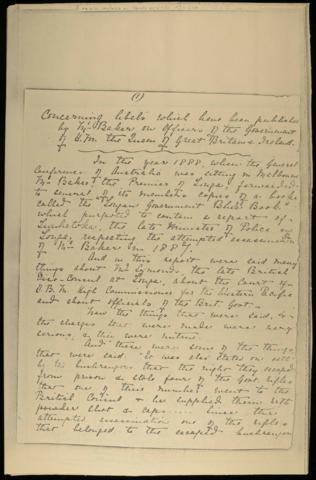 (1)
Concerning libels which have been published
by Mr Baker on Officers of the Government
of H.M. the Queen of Great Britain & Ireland.
In the year 1888, when the General
Conference of Australia was sitting in Melbourne
Mr Baker, the Premier of Tonga, forwarded
to several of its members copies of a book
called the "Tongan Government Blue Book"
which purported to contain a report of
the late Minister of Police in
Tonga, respecting the attempted assassination
of Mr Baker in 1887.
And in this report were said many
things about Mr Symonds, the late British
Vice-Consul at Tonga, about the Court of
H.B.M. High Commissioner for the Western Pacific
and about officials of the Brit. Govt.
Now the things that were said, &
the charges that were made were very
serious, & they were untrue.
And these were some of the things
that were said. It was also stated on oath
by the bushrangers that the night they escaped
from prison & stole four of the Govt. rifles
that one of their number went to the
British Consul & he supplied them with
powder shot & caps ...... Since the
attempted assassination one of the rifles
that belonged to the escaped bushrangers